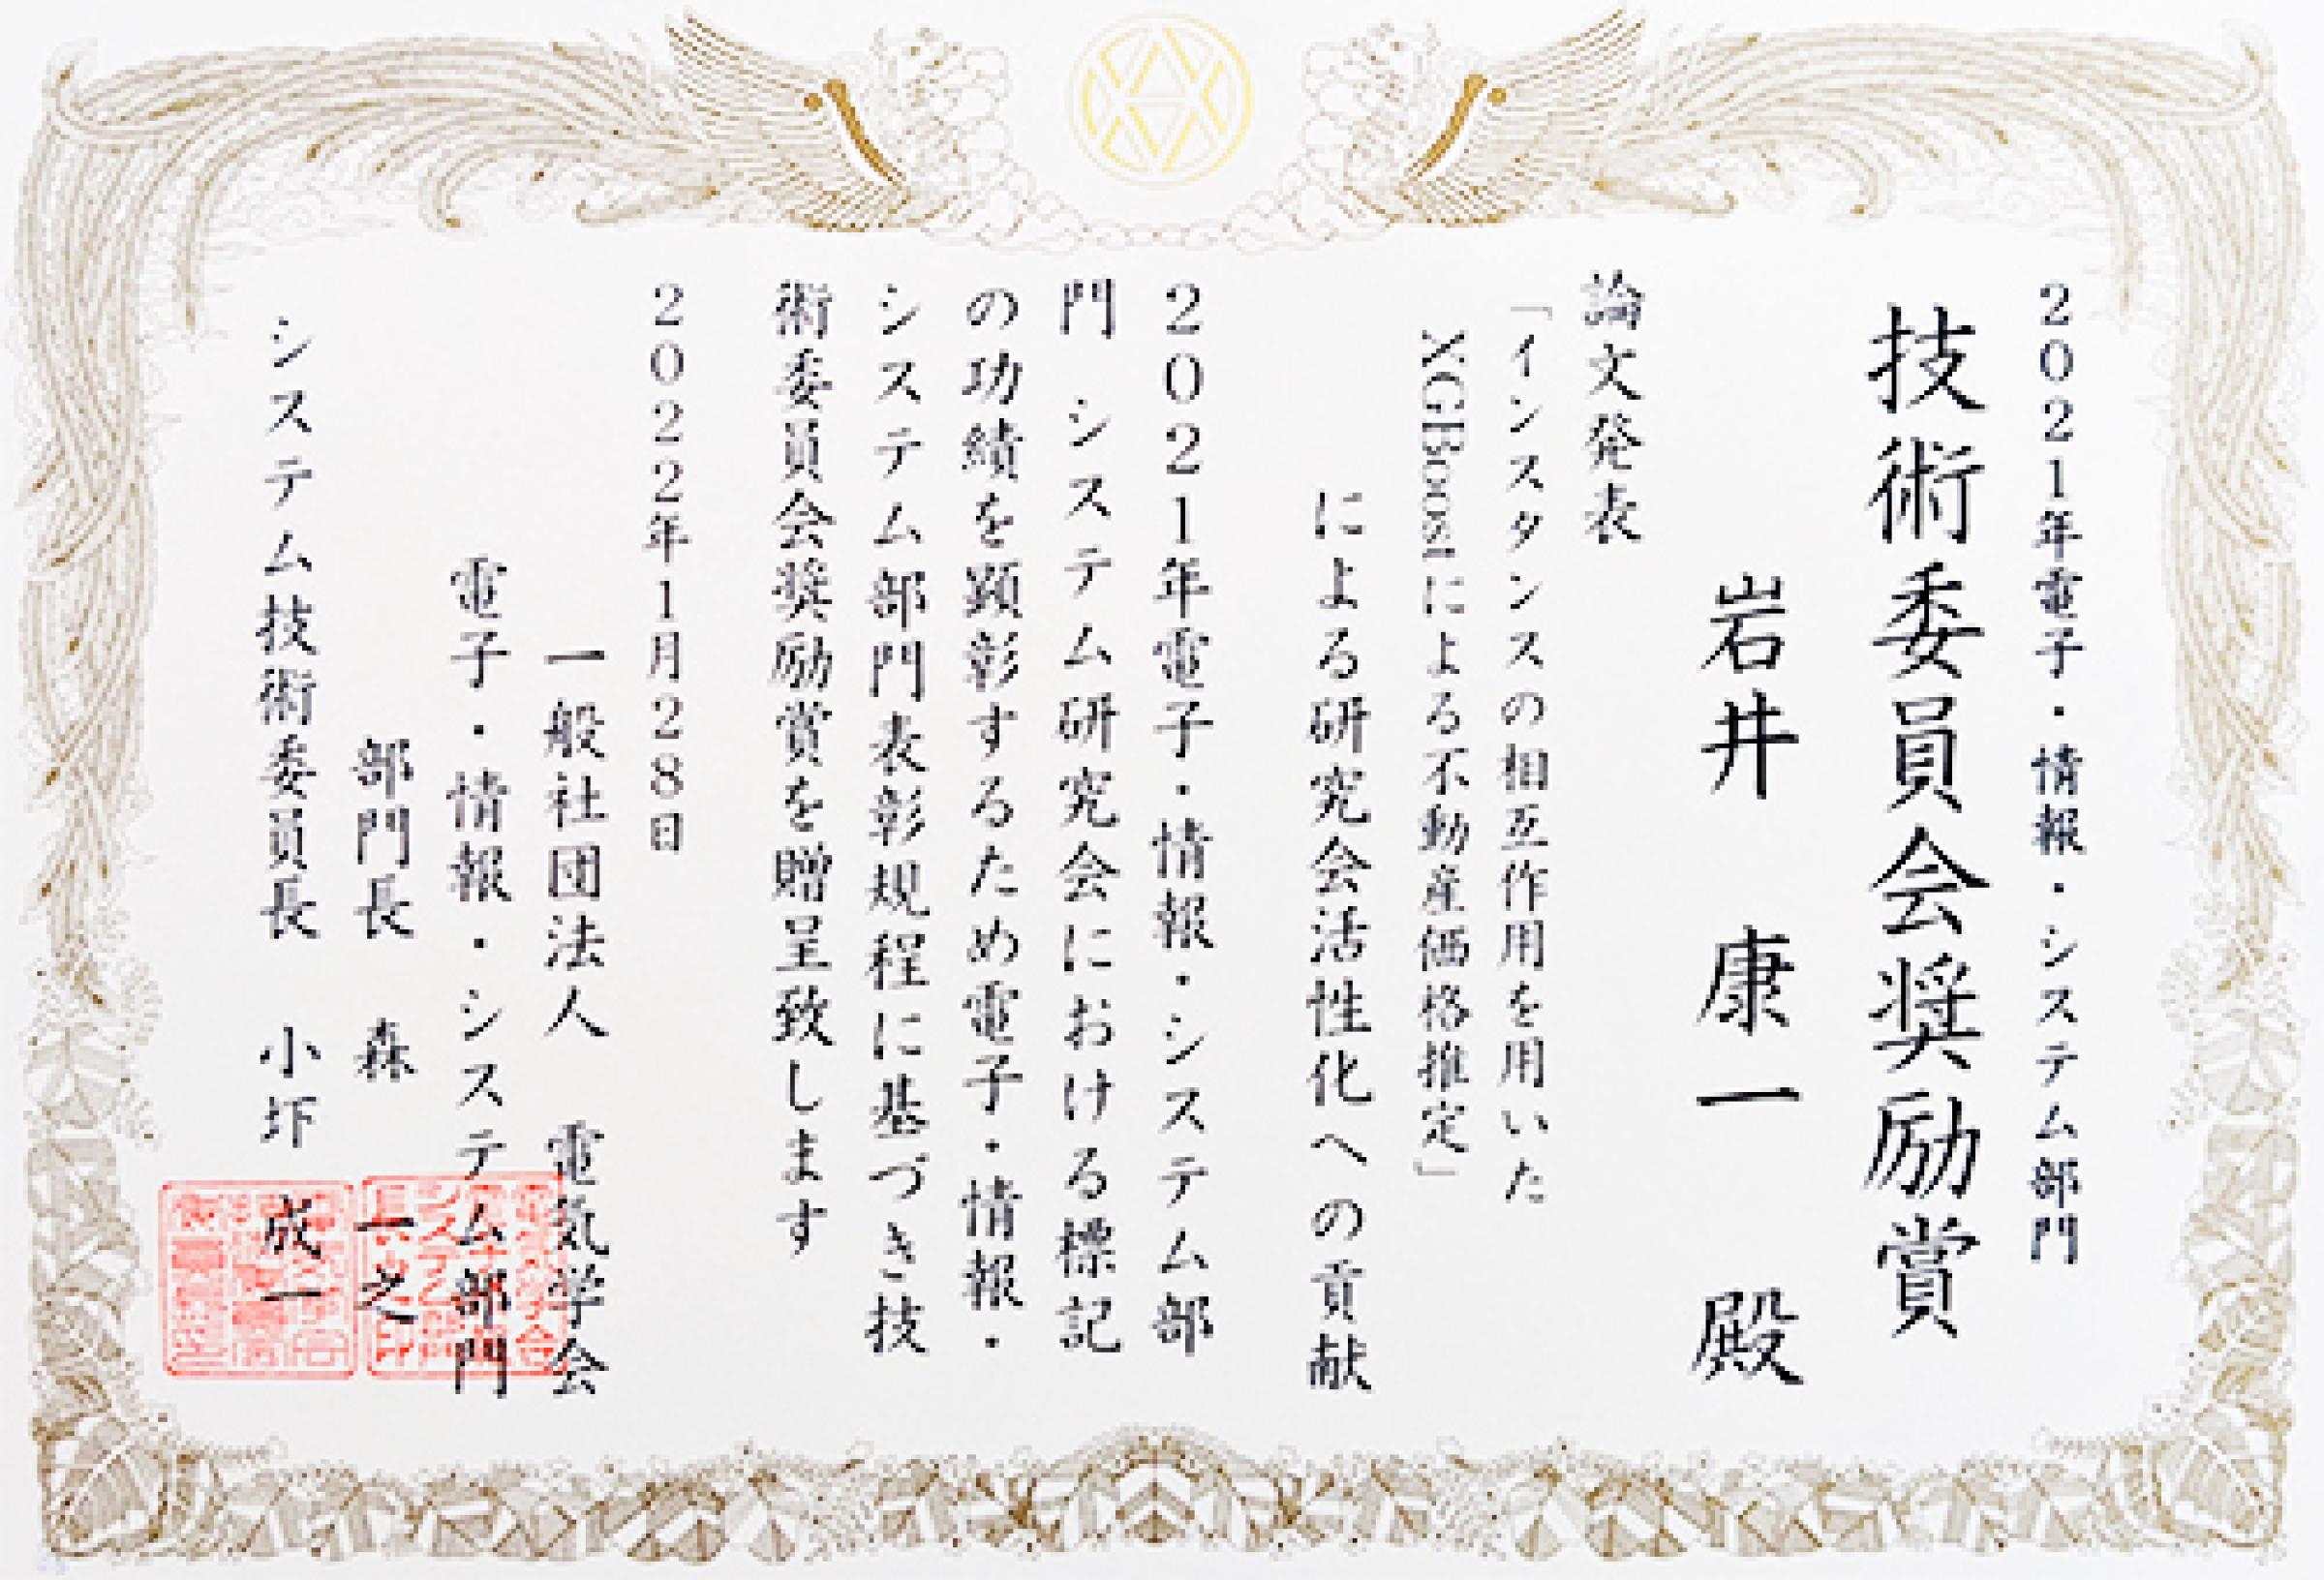 2021年電子・情報・システム部門
技術委員会奨励賞
岩井 康一 殿
論文発表
「インスタンスの相互作用を用いた
XGBoostによる不動産価格推定」
による研究会活性化への貢献
2021年電子・情報・システム部
門 システム研究会における標記
の功績を顕彰するため電子・情報・
システム部門表彰規程に基づき技
術委員会奨励賞を贈呈致します
2022年1月28日
一般社団法人 電気学会
電子・情報・システム部門
部門長 森 一之
システム技術委員長 小圷 成一